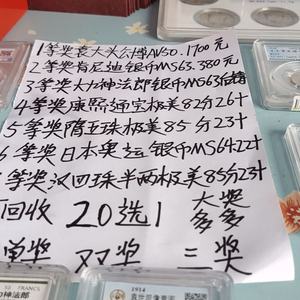 1等奖袁大头公博AU50.1700元
2等奖肯尼迪银币MS63.380元
3等奖大力神法郎银币MS63
4等奖康熙通宝极美82分26十
5等奖隋五珠极美85分23十
6等奖日本奥运银币MS64.22十
等奖汉四珠半两极美85分23十
回收 20选1 大奖多多
单奖 双奖 = 奖
50 FRANCS
1914